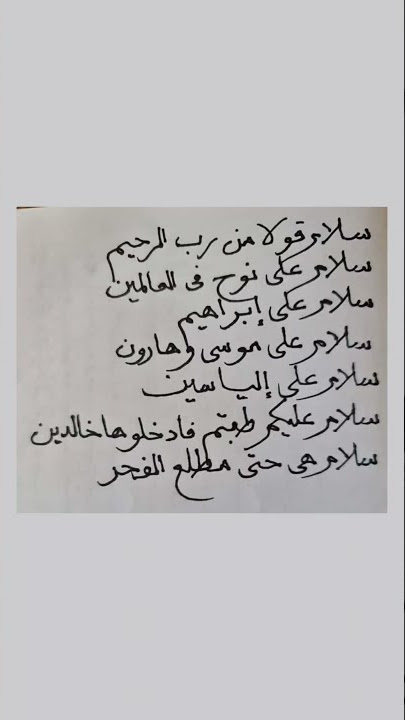 سلام قولا من رب الرحيم
سلام على نوح في العالمين
سلام على إبراهيم
سلام على موسى وهارون
سلام على إلياسين
سلام عليكم طبتم فادخلوها خالدين
سلام هي حتى مطلع الفجر